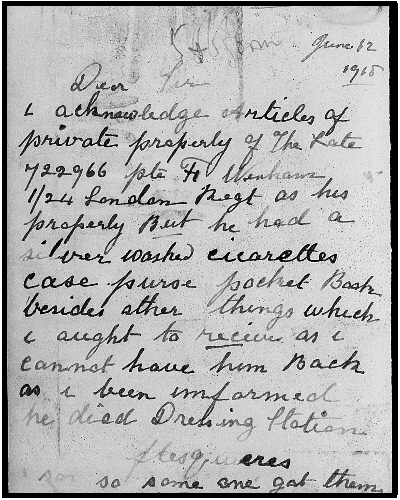 June 12
1918
Dear Sir
i acknowledge Articles of
private property of The Late
722966 pte F
1/24 London Regt as his
property But he had a
silver washed cicarettes
case purse pocket Book
besides other things which
i aught to recieve as i
cannot have him Back
as i been imformed
he died Dressing Station
flesquieres
so some one got them